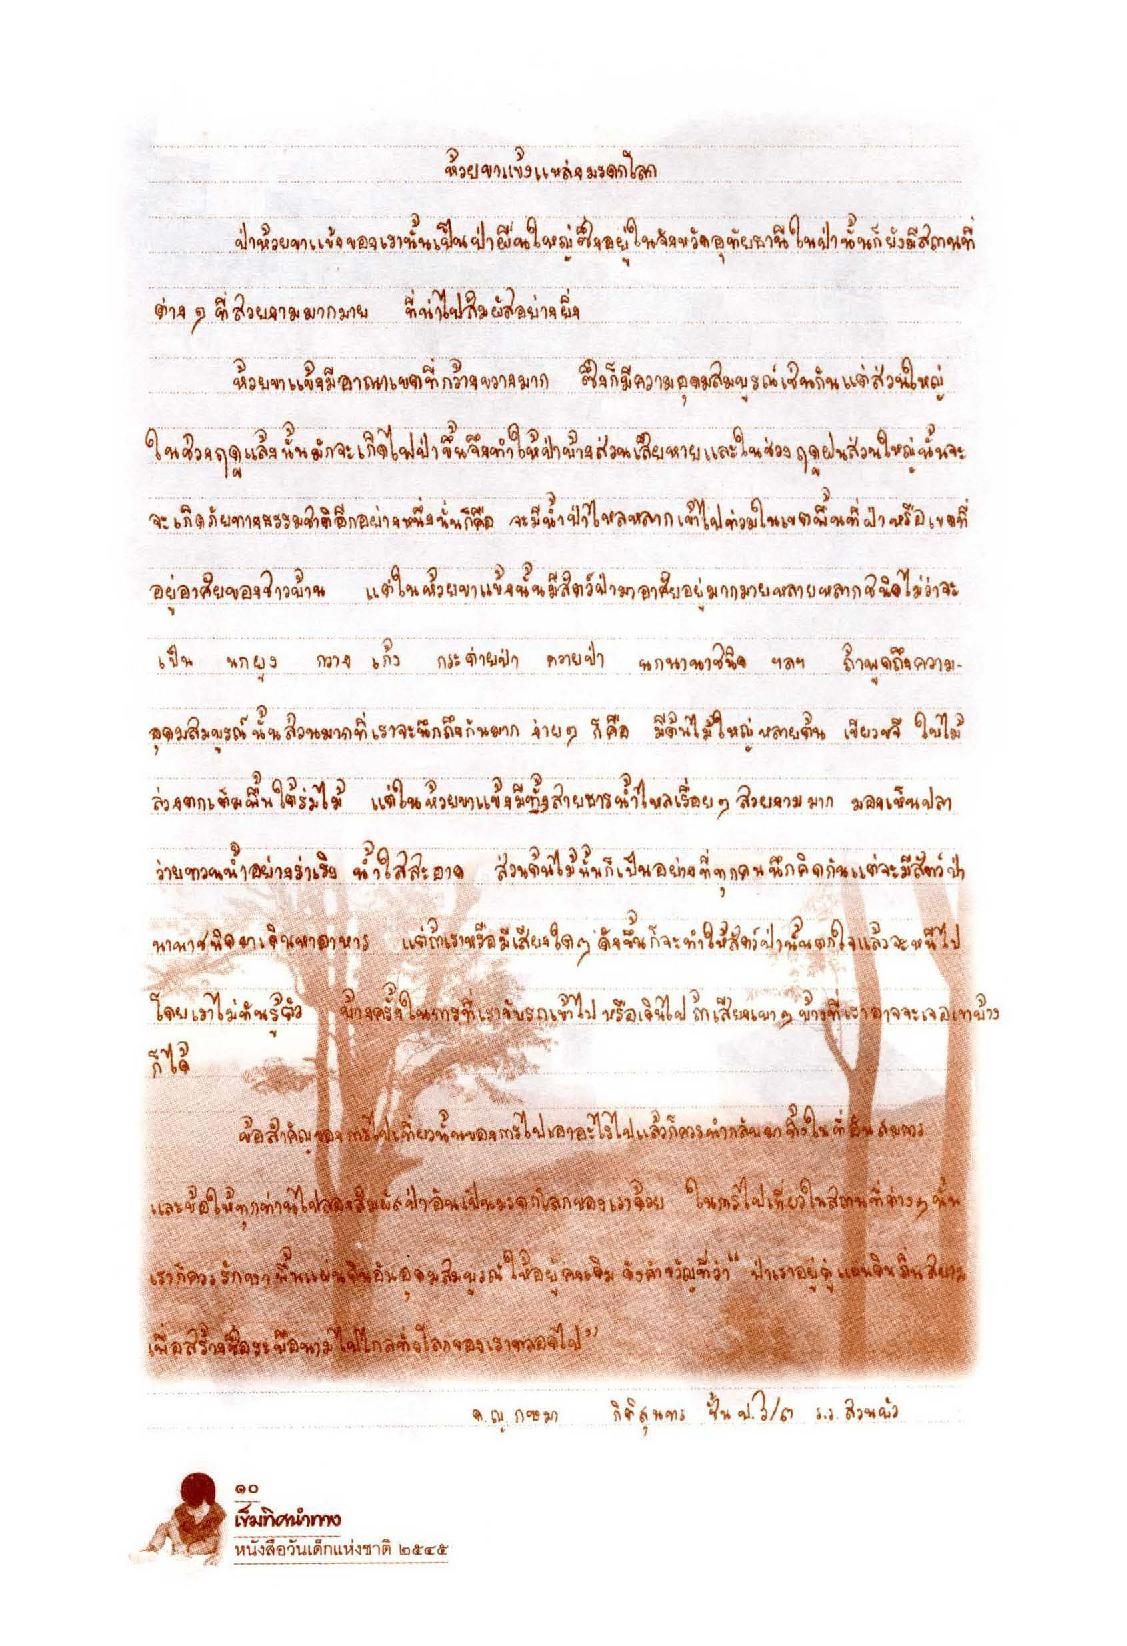 ห้วยขาแข้งแหล่งมรดกโลก
ป่าห้วยขาแข้งของเรานั้นเป็นป่าผืนใหญ่ซึ่งอยู่ในจังหวัดอุทัยธานีในป่านั้นก็ยังมีสถานที่
ต่างๆ ที่สวยงามมากมาย ที่น่าไปสัมผัสอย่างยิ่ง
ห้วยขาแข้งมีอาณาเขตที่กว้างขวางมาก ซึ่งก็มีความอุดมสมบูรณ์เช่นกันแต่ส่วนใหญ่
ในช่วงฤดูแล้งนั้นมักจะเกิดไฟป่าขึ้นจึงทำให้ป่าบ้างส่วนเสียหายและในช่วงฤดูฝนส่วนใหญ่นั้นจะ
จะเกิดภัยทางธรรมชาติอีกอย่างหนึ่งนั่นก็คือ จะมีน้ำป่าไหลหลากเข้าไปท่วมในเขตพื้นที่ป่าหรือเขตที่
อยู่อาศัยของชาวบ้าน แต่ในห้วยขาแข้งนั้นมีสัตว์ป่ามาอาศัยอยู่มากมายหลายหลากชนิดไม่ว่าจะ
เป็น นกยูง กวาง เก้ง กระต่ายป่า ควายป่า นกนานาชนิด ฯลฯ ถ้าพูดถึงความ-
อุดมสมบูรณ์นั้นส่วนมากที่เราจะนึกถึงกันมาก ง่ายๆ ก็คือ มีต้นไม้ใหญ่หลายต้น เขียวขจี ใบไม้
ล่วงตกเต็มพื้นใต้ร่มไม้ แต่ในห้วยขาแข้งมีทั้งสายธารน้ำไหลเรื่อยๆ สวยงามมาก มองเห็นปลา
ว่ายทวนน้ำอย่างร่าเริง น้ำใสสะอาด ส่วนต้นไม้นั้นก็เป็นอย่างที่ทุกคนนึกคิดกันแต่จะมีสัตว์ป่า
นานาชนิดมาเดินหาอาหาร แต่ถ้าเราหรือมีเสียงใดๆ ดังขึ้นก็จะทำให้สัตว์ป่านั้นตกใจแล้วจะหนีไป
โดยเราไม่ทันรู้ตัว บ้างครั้งในการที่เราขับรถเข้าไป หรือเดินไป ถ้าเสียงเบาๆ บ้างทีเราอาจจะเจอเขาบ้าง
ก็ได้
ข้อสำคัญของการไปเที่ยวนั้นของการไปเอาอะไรไปแล้วก็ควรนำกลับมาทิ้งในที่อันสมควร
และขอให้ทุกท่านไปลองสัมผัสป่าอันเป็นมรดกโลกของเราด้วย ในการไปเที่ยวในสถานที่ต่างๆ นั้น
เราก็ควรรักษาพื้นแผ่นดินอันอุดมสมบูรณ์ให้อยู่คงเดิม ดังคำขวัญที่ว่า “ป่าเราอยู่คู่แผ่นดินถิ่นสยาม
เพื่อสร้างชื่อระบือนามไปไกลทั่วโลกของเราตลอดไป”
ด.ญ. กชมา กิติสุนทร ชั้น ป.๖/๓ ร.ร. สวนบัว
๑๐
เข็มทิศนำทาง
หนังสือวันเด็กแห่งชาติ ๒๕๔๕